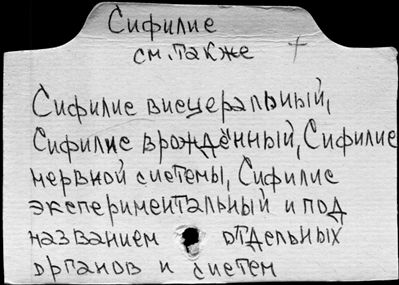 Сифилис
см. также
Сифилис висцеральный,
Сифилис врождённый, Сифилис
нервной системы, Сифилис
экспериментальный и под
названием отдельных
органов и систем